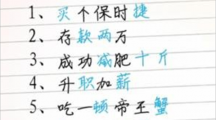 1、买个保时捷
2、存款两万
3、成功减肥十斤
4、升职加薪
5、吃一顿帝王蟹